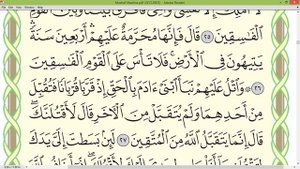 ٱلْفَٰسِقِينَ ٢٥ قَالَ فَإِنَّهَا مُحَرَّمَةٌ عَلَيْهِمْ أَرْبَعِينَ سَنَةً
يَتِيهُونَ فِى ٱلْأَرْضِ فَلَا تَأْسَ عَلَى ٱلْقَوْمِ ٱلْفَٰسِقِينَ
٢٦ وَٱتْلُ عَلَيْهِمْ نَبَأَ ٱبْنَىْ ءَادَمَ بِٱلْحَقِّ إِذْ قَرَّبَا قُرْبَانًا فَتُقُبِّلَ
مِنْ أَحَدِهِمَا وَلَمْ يُتَقَبَّلْ مِنَ ٱلْءَاخَرِ قَالَ لَأَقْتُلَنَّكَ
قَالَ إِنَّمَا يَتَقَبَّلُ ٱللَّهُ مِنَ ٱلْمُتَّقِينَ ٢٧ لَئِنۢ بَسَطتَ إِلَىَّ يَدَكَ